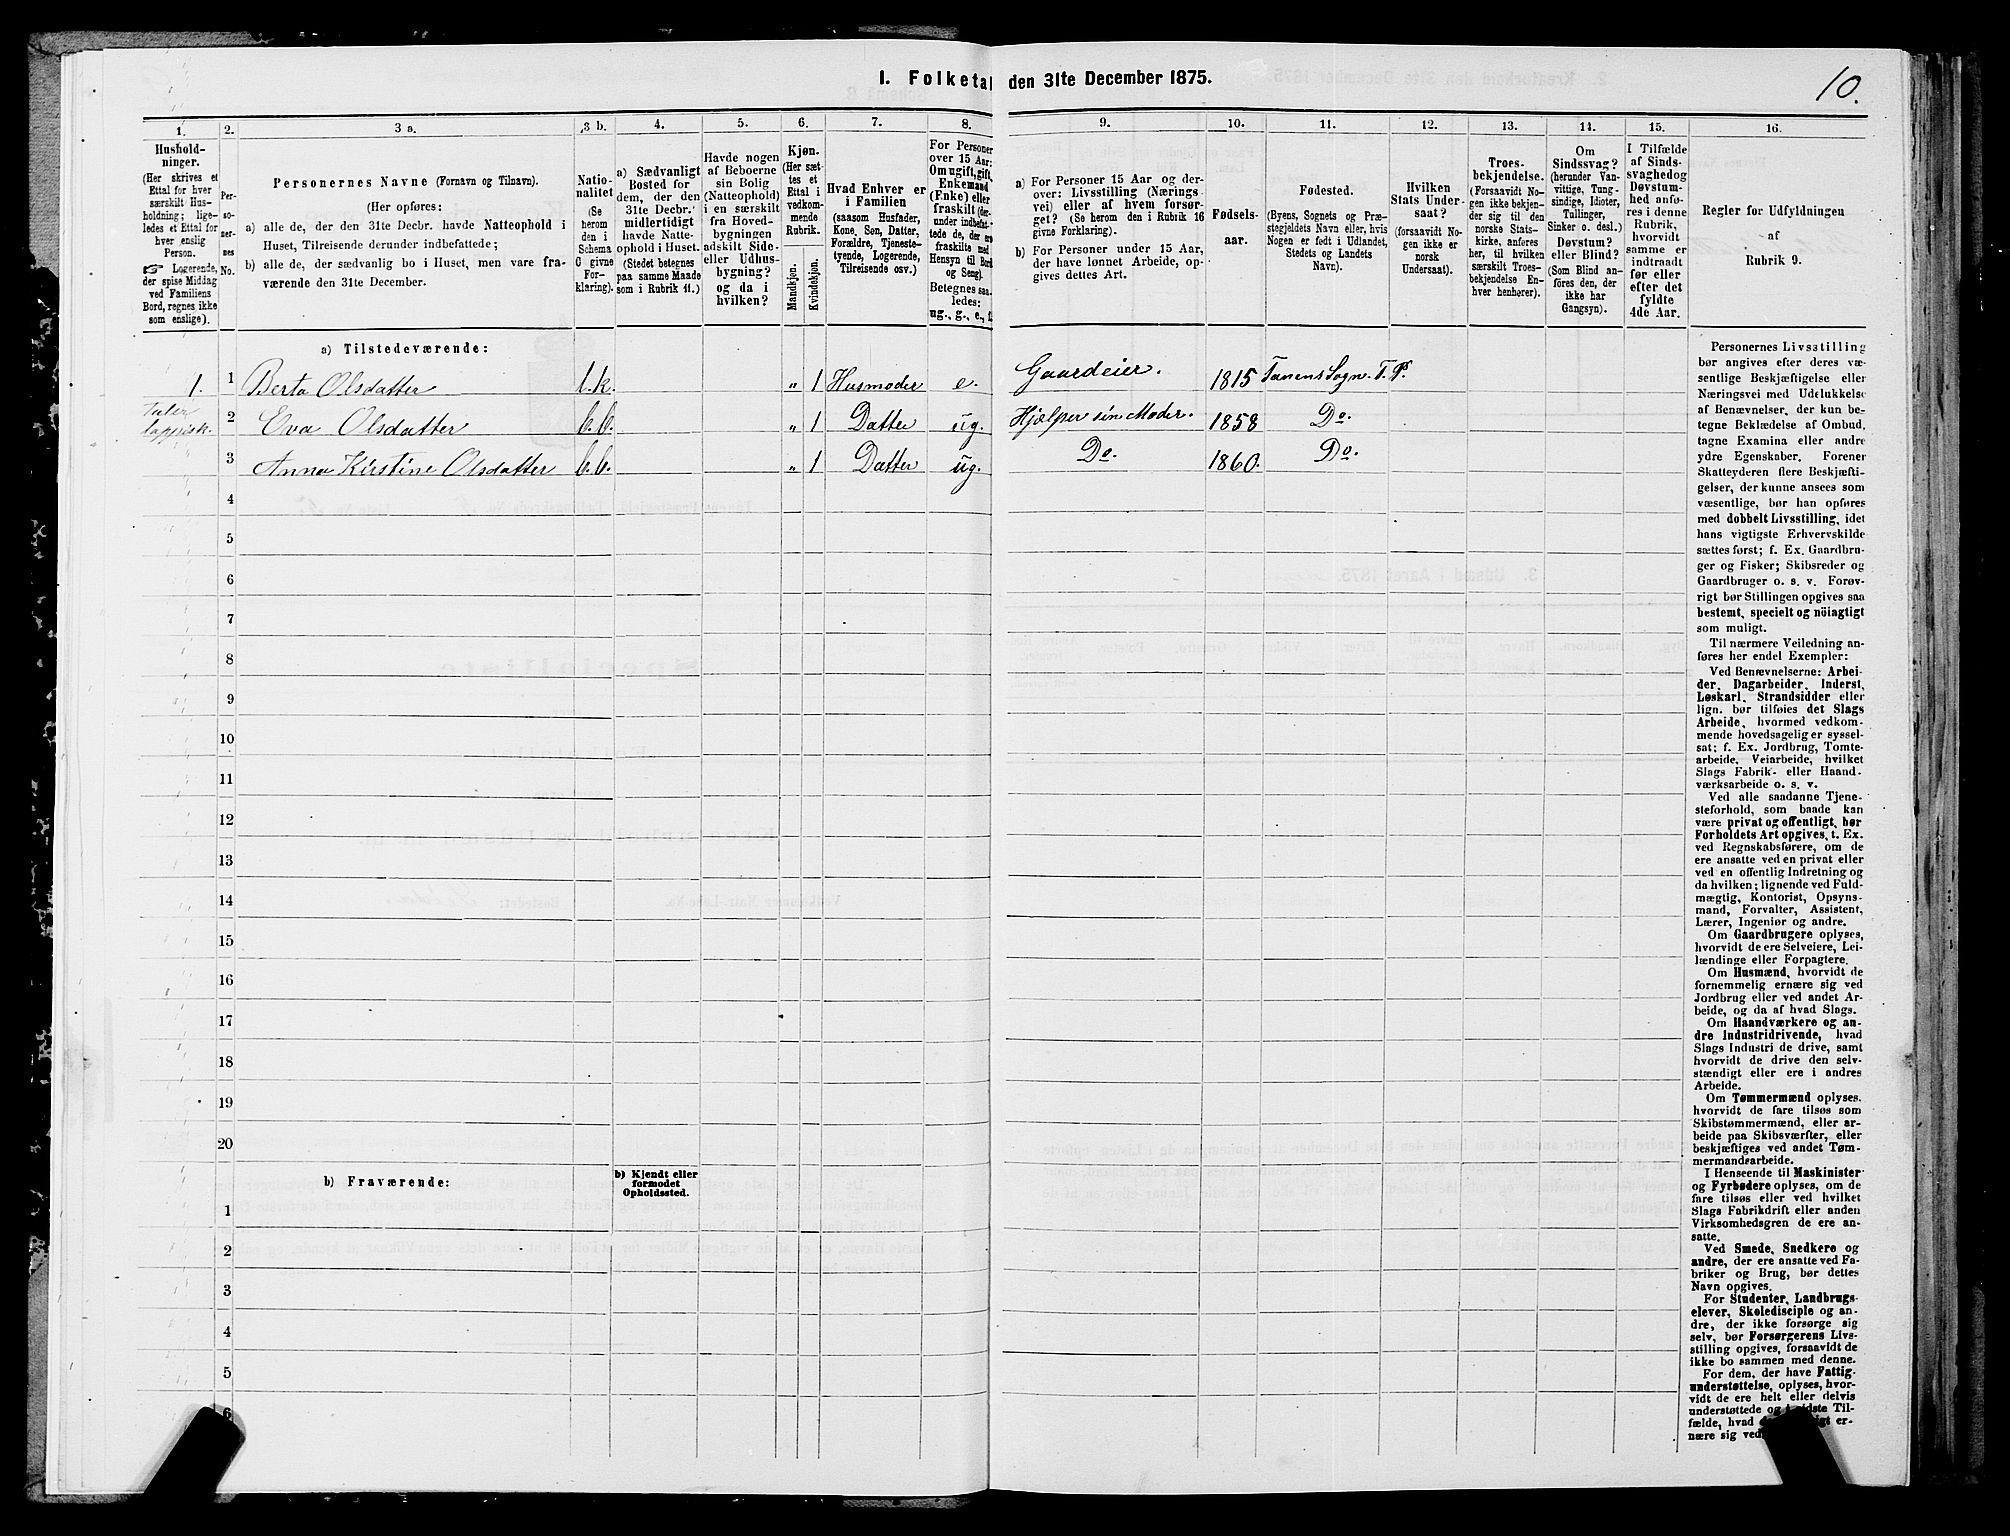 10.
1. Folketal den 31te December 1875.
1.
2.
3 a.
3 b.
4.
5.
6.
7.
8.
9.
10.
11.
12.
13.
14.
15.
16.
Hushold-
ninger.
(Her skrives et
Ettal for hver
særskilt Hus-
holdning; lige-
ledes et Ettal for
hver enslig
Person.
☞ Logerende,
der spise Middag
ved Familiens
Bord, regnes ikke
som enslige).
Per-
so-
ner-
nes
No.
Personernes Navne (Fornavn og Tilnavn).
(Her opføres:
a) alle de, der den 31te Decbr. havde Natteophold i
Huset, Tilreisende derunder indbefattede;
b) alle de, der sædvanlig bo i Huset, men vare fra-
værende den 31te December.
Natio-
nalitet
(Se
herom
den i
Schema
C givne
For-
klaring).
a) Sædvanligt
Bosted for
dem, der den
31te Decbr.
midlertidigt
havde Natte-
ophold i Huset.
(Stedet betegnes
paa samme Maade
som i Rubrik 11.)
Havde nogen
af Beboerne
sin Bolig
(Natteophold)
i en særskilt
fra Hoved-
bygningen
adskilt Side-
eller Udhus-
bygning?
og da i
hvilken?
Kjøn.
(Her sæt-
tes et
Ettal i
vedkom-
mende
Rubrik.
Mandkjøn.
Kvindekjøn.
Hvad Enhver er
i Familien
(saasom Husfader,
Kone, Søn, Datter,
Forældre, Tjeneste-
tyende, Logerende,
Tilreisende osv.)
For Personer
over 15 Aar:
Om ugift, gift,
Enkemand
(Enke) eller
fraskilt (der-
under indbefat-
tede de, der ere
fraskilte med
Hensyn til Bord
og Seng).
Betegnes saa-
ledes:
ug., g., e., f.
a) For Personer 15 Aar og der-
over: Livsstilling (Nærings-
vei) eller af hvem forsør-
get? (Se herom den i Rubrik 16
givne Forklaring).
b) For Personer under 15 Aar,
der have lønnet Arbeide, op-
gives dettes Art.
Fødsels-
aar.
Fødested.
(Byens, Sognets og Præ-
stegjeldets Navn eller, hvis
Nogen er født i Udlandet,
Stedets og Landets
Navn).
Hvilken
Stats Under-
saat?
(forsaavidt No-
gen ikke er
norsk
Undersaat).
Troes-
bekjendelse.
(Forsaavidt No-
gen ikke bekjen-
der sig til den
norske Stats-
kirke, anføres
her, til hvilken
særskilt Troes-
bekjendelse En-
hver henhører).
Om
Sindssvag?
(herunder Van-
vittige, Tung-
sindige, Idioter,
Tullinger,
Sinker o. desl.)
Døvstum?
eller Blind?
(Som Blind an-
føres den, der
ikke har
Gangsyn).
I Tilfælde
af Sinds-
svaghed og
Døvstum-
hed anfø-
res i denne
Rubrik,
hvorvidt
samme er
indtraadt
før eller
efter det
fyldte
4de Aar.
Regler for Udfyldningen
af
Rubrik 9.
a) Tilstedeværende:
1. 1 Berta Olsdatter l.k. „ 1 Husmoder e. Gaardeier. 1815 Tanens Sogn. T. P.
Taler
lappisk. 2 Eva Olsdatter b.b. „ 1 Datter ug. Hjælper sin Moder. 1858 Do.
3 Anna Kirstine Olsdatter b.b. „ 1 Datter ug. Do. 1860. Do.
4
5
6
7
8
9
10
11
12
13
14
15
16
17
18
19
20
b) Fraværende:
b) Kjendt eller
formodet
Opholdssted.
1
2
3
4
5
6
Personernes Livsstilling
bør angives efter deres væ-
sentlige Beskjæftigelse eller
Næringsvei med Udelukkelse
af Benævnelser, der kun be-
tegne Beklædelse af Ombud,
tagne Examina eller andre
ydre Egenskaber. Forener
Skatteyderen flere Beskjæfti-
gelser, der kunne ansees som
væsentlige, bør han opføres
med dobbelt Livsstilling, idet
hans vigtigste Erhvervskilde
sættes først; f. Ex. Gaardbru-
ger og Fisker; Skibsreder og
Gaardbruger o. s. v. Forøv-
rigt bør Stillingen opgives saa
bestemt, specielt og nöiagtigt
som muligt.
Til nærmere Veiledning an-
føres her endel Exempler:
Ved Benævnelserne: Arbei-
der, Dagarbeider, Inderst,
Løskarl, Strandsidder eller
lign. bør tilføies det Slags
Arbeide, hvormed vedkom-
mende hovedsagelig er syssel-
sat; f. Ex. Jordbrug, Tomte-
arbeide, Veiarbeide, hvilket
Slags Fabrik- eller Haand-
værksarbeide o. s. v.
Ved alle saadanne Tjene-
steforhold, som baade kan
være privat og offentligt, bør
Forholdets Art opgives, t. Ex.
ved Regnskabsførere, om de
ere ansatte ved en privat eller
ved en offentlig Indretning og
da hvilken; lignende ved Fuld-
mægtig, Kontorist, Opsyns-
mand, Forvalter, Assistent,
Lærer, Ingeniør og andre.
Om Gaardbrugere oplyses,
hvorvidt de ere Selveiere, Lei-
lændinge eller Forpagtere.
Om Husmænd, hvorvidt de
fornemmelig ernære sig ved
Jordbrug eller ved andet Ar-
beide, og da af hvad Slags.
Om Haandværkere og an-
dre Industridrivende, hvad
Slags Industri de drive, samt
hvorvidt de drive den selv-
stændigt eller ere i andres
Arbeide.
Om Tømmermænd oplyses,
hvorvidt de fare tilsøs som
Skibstømmermænd, eller ar-
beide paa Skibsværfter, eller
beskjæftiges ved andet Tøm-
mermandsarbeide.
I Henseende til Maskinister
og Fyrbødere oplyses, om de
fare tilsøs eller ved hvilket
Slags Fabrikdrift eller anden
Virksomhedsgren de ere an-
satte.
Ved Smede, Snedkere og
andre, der ere ansatte ved Fa-
briker og Brug, bør dettes
Navn opgives.
For Studenter, Landbrugs-
elever, Skoledisciple og an-
dre, der ikke forsørge sig
selv, bør Forsørgerens Livs-
stilling opgives, forsaavidt de
ikke bo sammen med denne.
For dem, der have Fattig-
understøttelse, oplyses, hvor-
vidt de ere helt eller delvis
understøttede og sidste Til-
fælde, hvad er-
nære sig ved